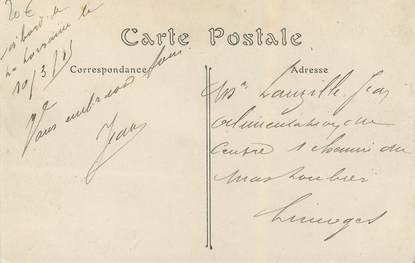 20€
à bord de
la Lorraine le
10/3/15
Carte Postale
Correspondance
Adresse
Vous embrasse tous
Jean
Mr Lauzille Jean
Alimentation du
Centre 1 chemin du
Mas Loubier
Limoges